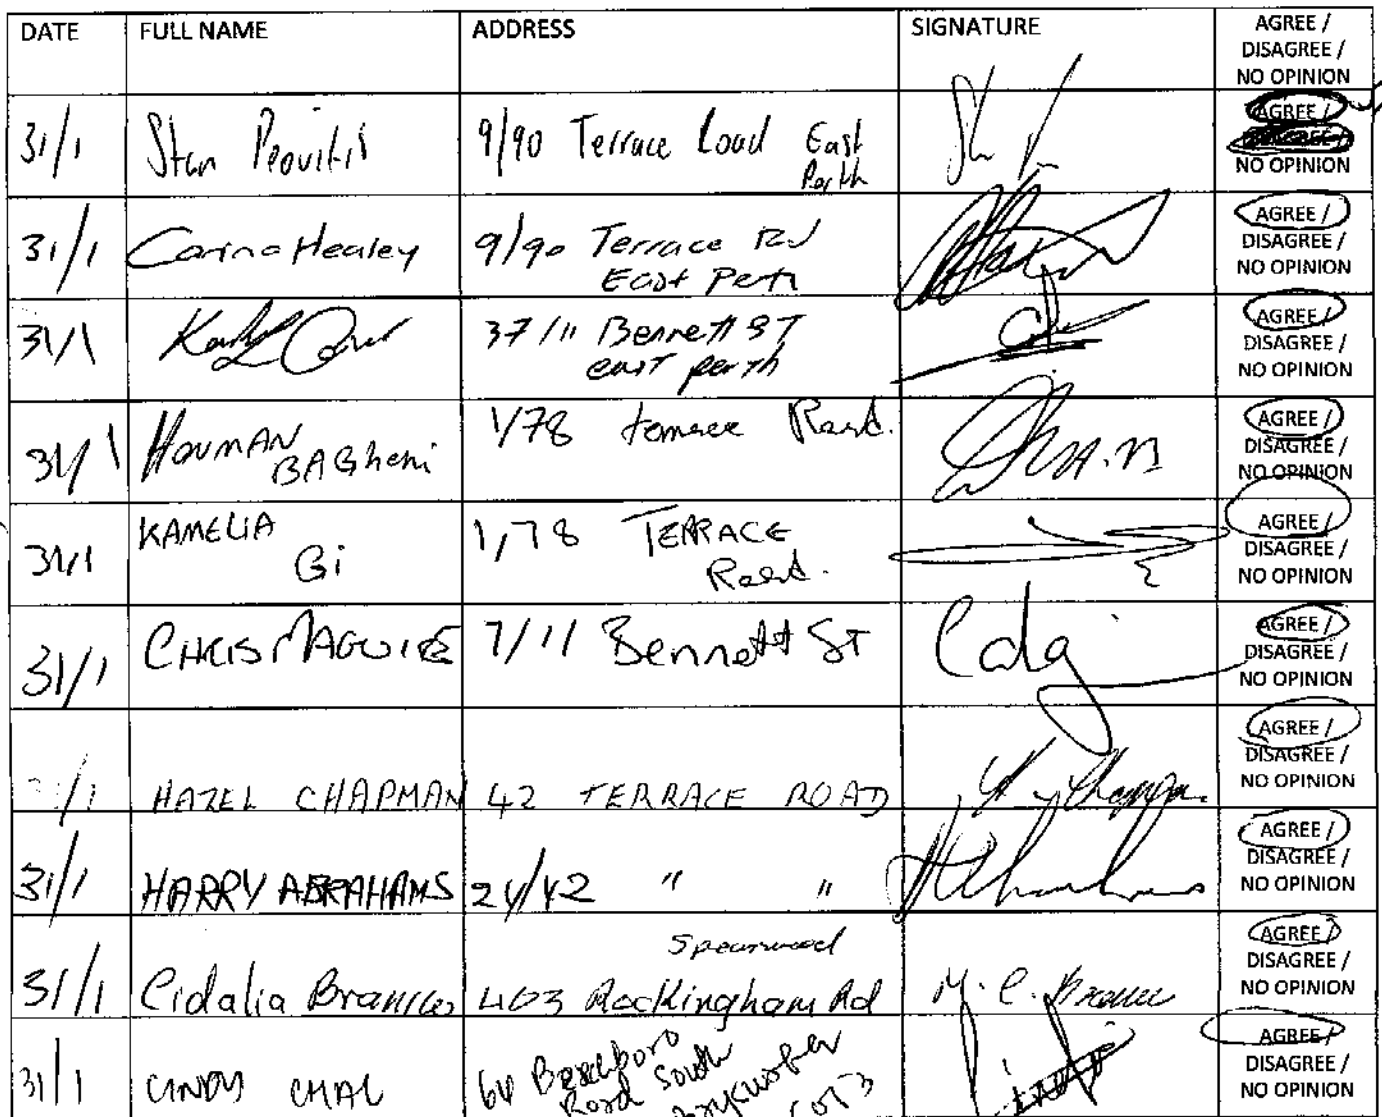 DATE FULL NAME ADDRESS SIGNATURE AGREE /
DISAGREE /
NO OPINION
31/1 Stan 9/90 Terrace Road East
Perth
AGREE /
NO OPINION
31/1 Carina Healey 9/90 Terrace Rd
East Perth
AGREE /
DISAGREE /
NO OPINION
31/1 37/11 Bennett ST
east perth
AGREE /
DISAGREE /
NO OPINION
31/1 HOUMAN
BAGheri
1/78 terrace Road.
AGREE /
DISAGREE /
NO OPINION
31/1 KAMELIA
Gi
1/78 TERRACE
Road.
AGREE /
DISAGREE /
NO OPINION
31/1 CHRIS MAGUIRE 7/11 Bennett ST
AGREE /
DISAGREE /
NO OPINION
31/1 HAZEL CHAPMAN 42 TERRACE ROAD
AGREE /
DISAGREE /
NO OPINION
31/1 HARRY ABRAHAMS 24/42 " "
AGREE /
DISAGREE /
NO OPINION
31/1 Cidalia 403 Rockingham Rd
Spearwood
AGREE /
DISAGREE /
NO OPINION
31/1 CINDY 60 Beechboro
Road South
AGREE /
DISAGREE /
NO OPINION